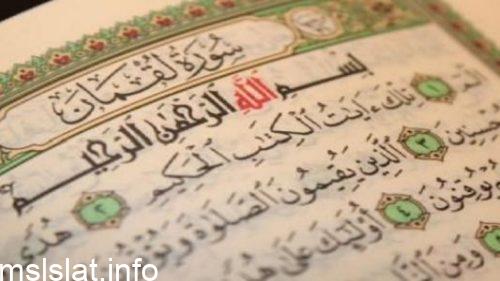 سُورَةُ لُقْمَان
بِسْمِ اللَّهِ الرَّحْمَٰنِ الرَّحِيمِ
الٓمٓ ١ تِلْكَ ءَايَٰتُ ٱلْكِتَٰبِ ٱلْحَكِيمِ ٢ هُدًى
ٱلَّذِينَ يُقِيمُونَ ٱلصَّلَوٰةَ وَيُؤْتُونَ
يُوقِنُونَ ٤ أُو۟لَٰٓئِكَ عَلَىٰ هُدًى
وَمِنَ
mslslat.info